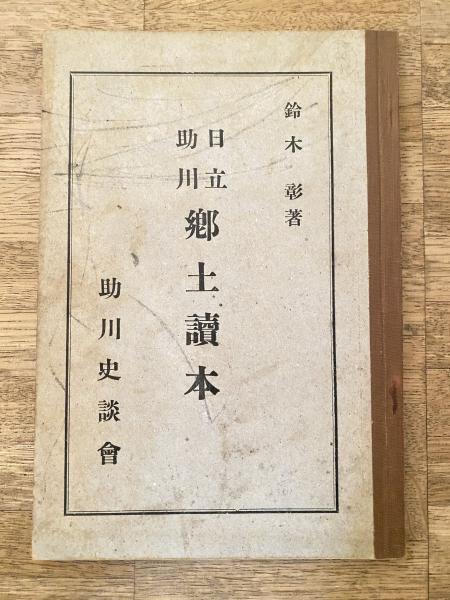 鈴木彰著
日立
助川
鄕土讀本
助川史談會